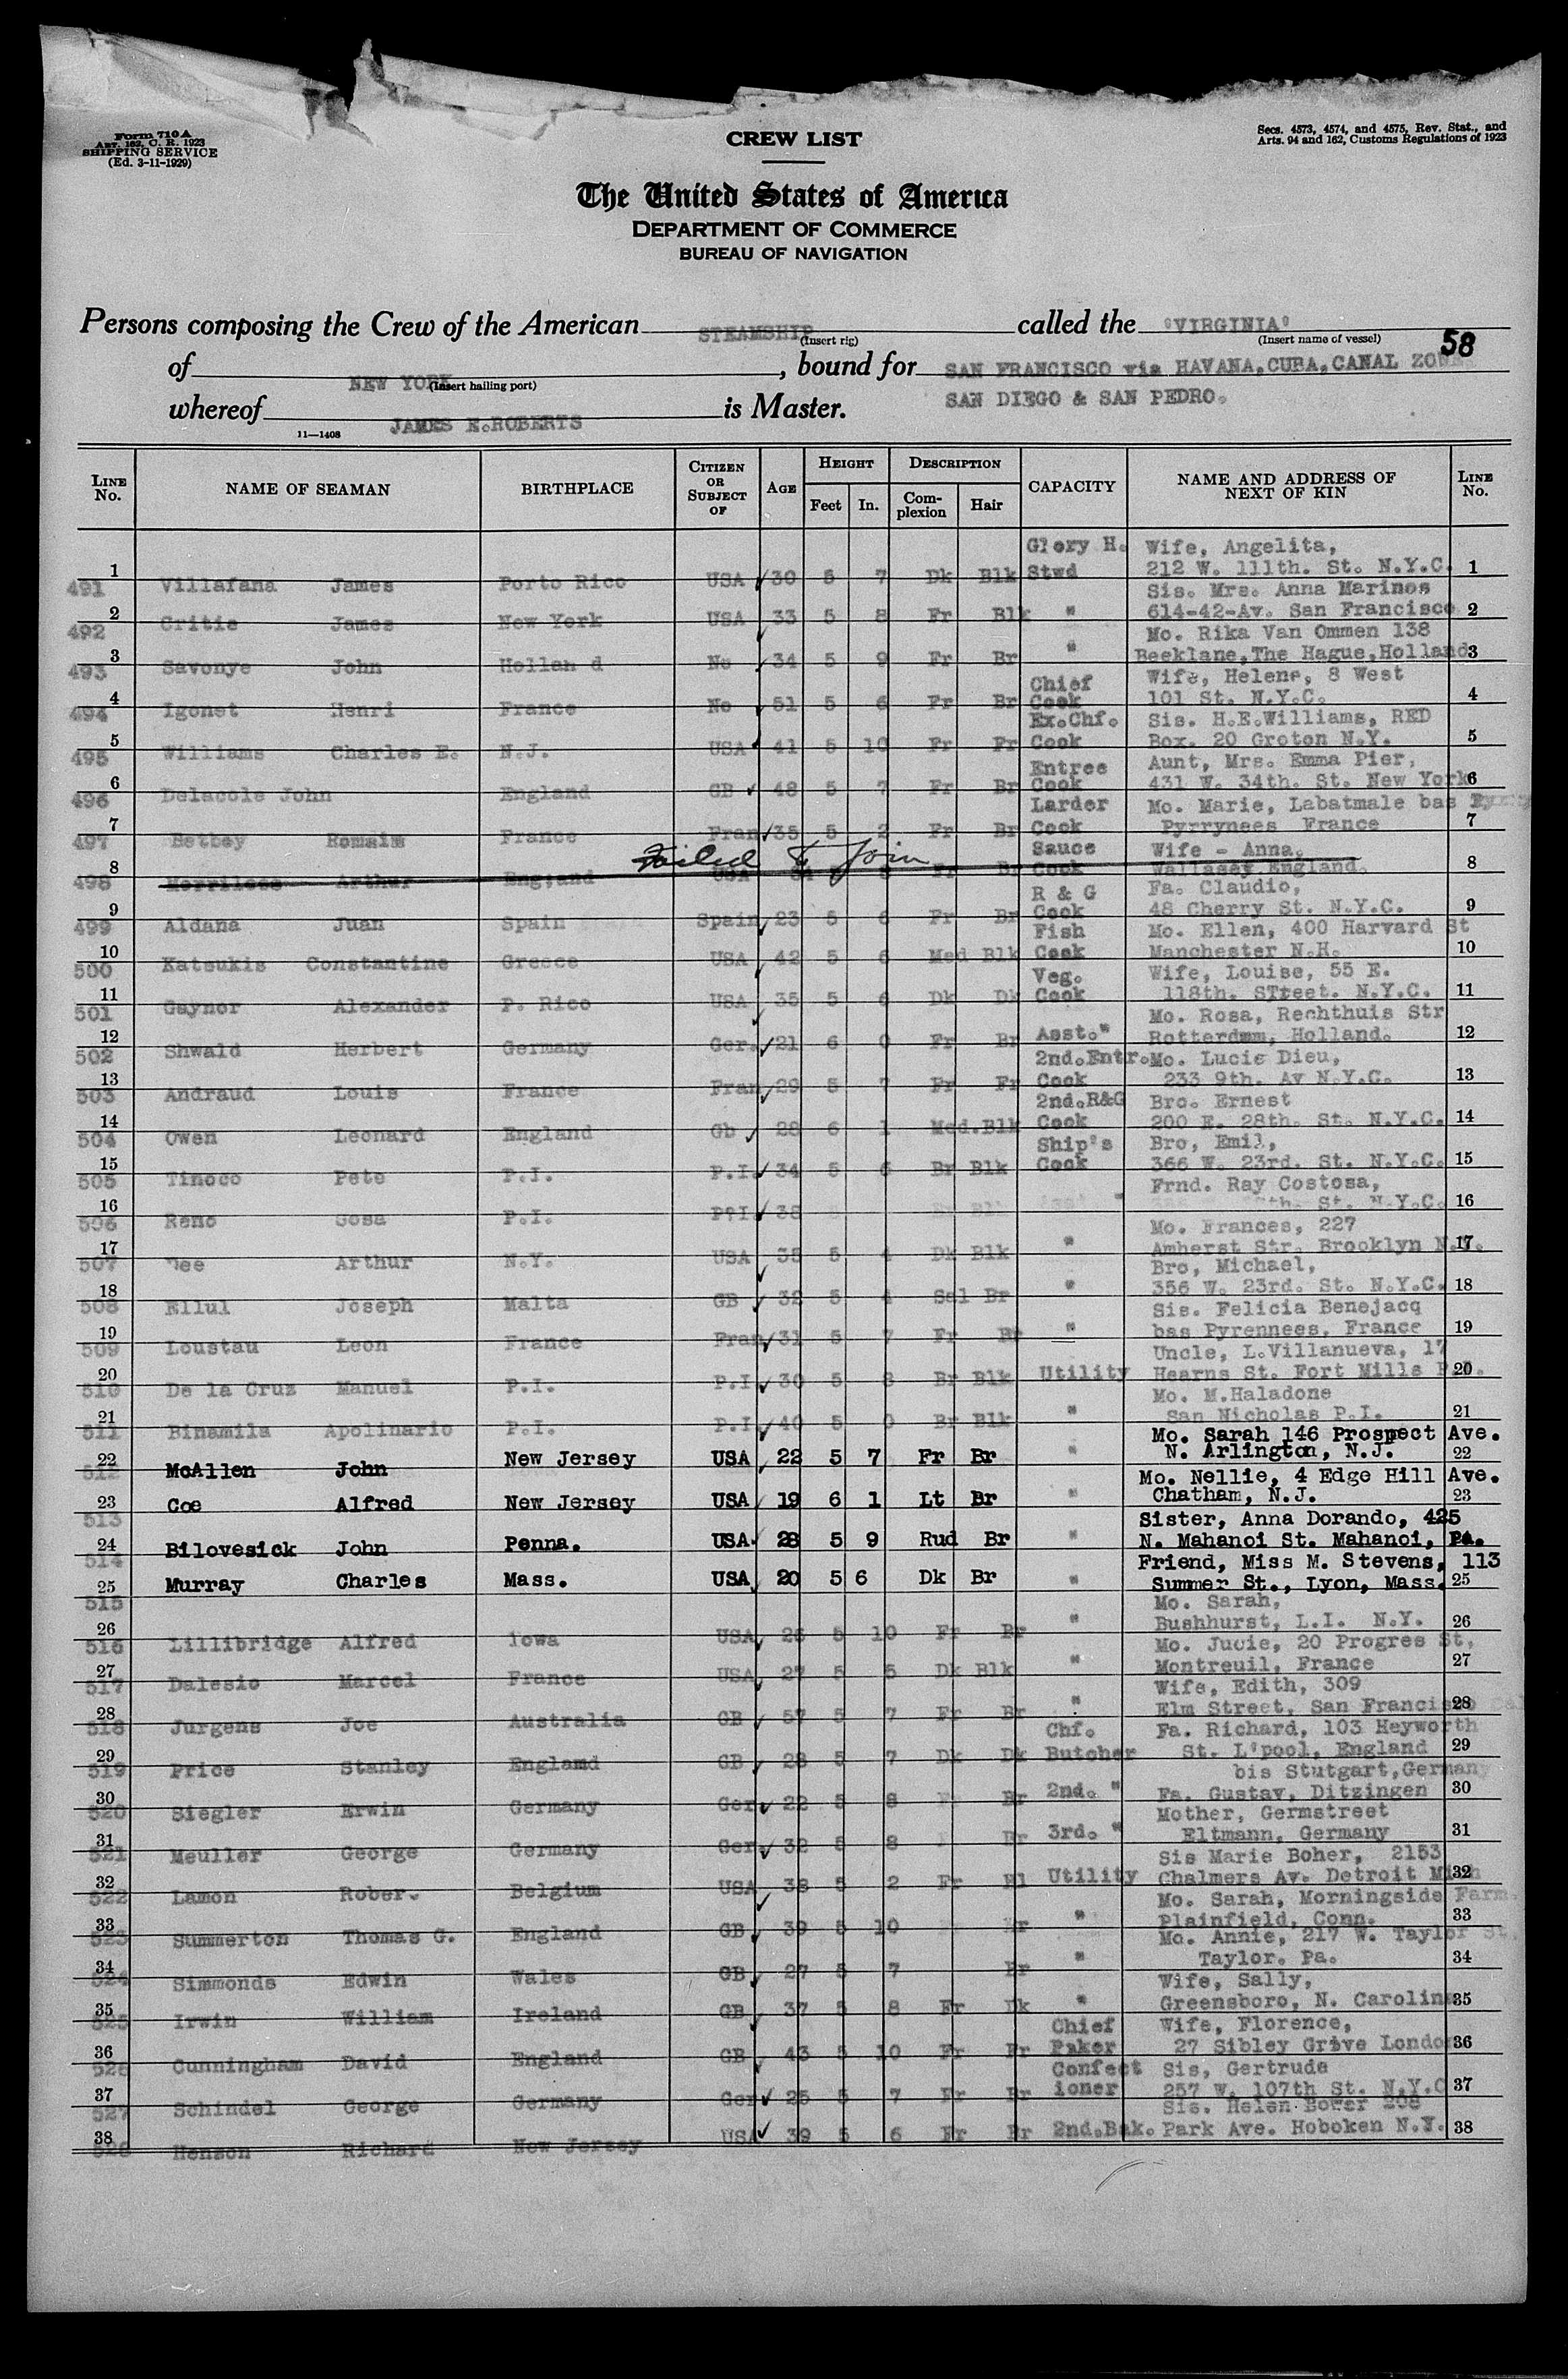 Form 710 A
Art. 162, C. R. 1923
SHIPPING SERVICE
(Ed. 3-11-1929)
CREW LIST
Secs. 4573, 4574, and 4575, Rev. Stat., and
Arts. 94 and 162, Customs Regulations of 1923
The United States of America
DEPARTMENT OF COMMERCE
BUREAU OF NAVIGATION
Persons composing the Crew of the American STEAMSHIP called the "VIRGINIA"
(Insert rig) (Insert name of vessel) 58
of NEW YORK, bound for SAN FRANCISCO via HAVANA, CUBA, CANAL
(Insert hailing port)
whereof JAMES E. ROBERTS is Master. SAN DIEGO & SAN PEDRO.
11—1408
LINE No. NAME OF SEAMAN BIRTHPLACE CITIZEN OR SUBJECT OF AGE HEIGHT Feet In. DESCRIPTION Complexion Hair CAPACITY NAME AND ADDRESS OF NEXT OF KIN LINE No.
Glory H. Wife, Angelita,
1 491 Villafana James Porto Rico USA 30 5 7 Dk Blk Stwd 212 W. 111th. St. N.Y.C. 1
Sis. Mrs. Anna Marinos
2 492 Critis James New York USA 33 5 8 Fr Blk " 614-42-Av. San Francisco 2
Mo. Rika Van Ommen 138
3 493 Savonye John Hollan d No 34 5 9 Fr Br " Beeklane, The Hague, Holland 3
Chief Wife, Helene, 8 West
4 494 Igonet Henri France No 51 5 6 Fr Br Cook 101 St. N.Y.C. 4
Ex.Chf. Sis. H.E.Williams, RED
5 495 Williams Charles E. N.J. USA 41 5 10 Fr Fr Cook Box. 20 Groton N.Y. 5
Entree Aunt, Mrs. Emma Pier,
6 496 Delacole John England GB 48 5 7 Fr Br Cook 431 W. 34th. St. New York 6
Larder Mo. Marie, Labatmale bas
7 497 Betbey Romaim France Fran 35 5 2 Fr Br Cook Pyrrynees France 7
Failed to Join
Sauce Wife - Anna.
8 498 Merrilees Arthur England USA Fr Br Cook Wallasey England. 8
R & G Fa. Claudio,
9 499 Aldana Juan Spain Spain 23 5 6 Fr Br Cook 48 Cherry St. N.Y.C. 9
Fish Mo. Ellen, 400 Harvard St
10 500 Katsukis Constantine Greece USA 42 5 6 Med Blk Cook Manchester N.H. 10
Veg. Wife, Louise, 55 E.
11 501 Gaynor Alexander P. Rico USA 35 5 6 Dk Dk Cook 118th. STreet. N.Y.C. 11
Mo. Rosa, Rechthuis Str
12 502 Shwald Herbert Germany Ger. 21 6 0 Fr Br Asst." Rotterdmm, Holland. 12
2nd.Entr. Mo. Lucie Dieu,
13 503 Andraud Louis France Fran 29 5 7 Fr Fr Cook 233 9th. Av N.Y.C. 13
2nd.R&G Bro. Ernest
14 504 Owen Leonard England Gb 28 6 1 Med. Blk Cook 200 E. 28th. St. N.Y.C. 14
Ship's Bro, Emil,
15 505 Tinoco Pete P.I. P.I. 34 5 6 Br Blk Cook 366 W. 23rd. St. N.Y.C. 15
Frnd. Ray Costosa,
16 506 Reno Sosa P.I. P?I. 38 5 Br Blk " th. St. N.Y.C. 16
Mo. Frances, 227
17 507 Dee Arthur N.Y. USA 35 5 4 Dk Blk " Amherst Str. Brooklyn N.Y. 17
Bro, Michael,
18 508 Ellul Joseph Malta GB 32 5 4 Sal Br " 356 W. 23rd. St. N.Y.C. 18
Sis. Felicia Benejacq
19 509 Loustau Leon France Fran 31 5 7 Fr Br " bas Pyrennees, France 19
Uncle, L.Villanueva, 17
20 510 De la Cruz Manuel P.I. P.I. 30 5 8 Br Blk Utility Hearns St. Fort Mills P.I. 20
Mo. M.Haladone
21 511 Binamila Apolinario P.I. P.I. 40 5 0 Br Blk " San Nicholas P.I. 21
Mo. Sarah 146 Prospect Ave.
22 512 McAllen John New Jersey USA 22 5 7 Fr Br " N. Arlington, N.J. 22
Mo. Nellie, 4 Edge Hill Ave.
23 513 Coe Alfred New Jersey USA 19 6 1 Lt Br " Chatham, N.J. 23
Sister, Anna Dorando, 425
24 514 Bilovesick John Penna. USA 28 5 9 Rud Br " N. Mahanoi St. Mahanoi, Pa.
Friend, Miss M. Stevens, 113
25 515 Murray Charles Mass. USA 20 5 6 Dk Br " Summer St., Lyon, Mass. 25
Mo. Sarah,
26 516 Lillibridge Alfred Iowa USA 26 5 10 Fr Br " Bushhurst, L.I. N.Y. 26
Mo. Jucie, 20 Progres St,
27 517 Dalesio Marcel France USA 27 5 5 Dk Blk " Montreuil, France 27
Wife, Edith, 309
28 518 Jurgens Joe Australia GB 57 5 7 Fr Br " Elm Street, San Francisco Cal 28
Chf. Fa. Richard, 103 Heyworth
29 519 Price Stanley England GB 28 5 7 Dk Dk Butcher St. L'pool, England 29
bis Stutgart, Germany
30 520 Siegler Erwin Germany Ger 22 5 8 Br 2nd. " Fa. Gustav, Ditzingen 30
Mother, Germstreet
31 521 Meuller George Germany Ger. 32 5 8 Br 3rd. " Eltmann, Germany 31
Sis Marie Boher, 2153
32 522 Lamon Rober. Belgium USA 38 5 2 Fr Bl Utility Chalmers Av. Detroit Mich 32
Mo. Sarah, Morningside Farm.
33 523 Summerton Thomas G. England GB 39 5 10 Br " Plainfield, Conn. 33
Mo. Annie, 217 W. Taylor St.
34 524 Simmonds Edwin Wales GB 27 5 7 Br " Taylor. Pa. 34
Wife, Sally,
35 525 Irwin William Ireland GB 37 5 8 Fr Dk " Greensboro, N. Carolina 35
Chief Wife, Florence,
36 526 Cunningham David England GB 43 5 10 Fr Fr Baker 27 Sibley Grove London 36
Confect Sis, Gertrude
37 527 Schindel George Germany Ger 25 5 7 Fr Br ioner 257 W. 107th St. N.Y.C 37
Sis. Helen Bower 208
38 528 Henson Richard New Jersey USA 39 5 6 Fr Br 2nd.Bak. Park Ave. Hoboken N.Y. 38